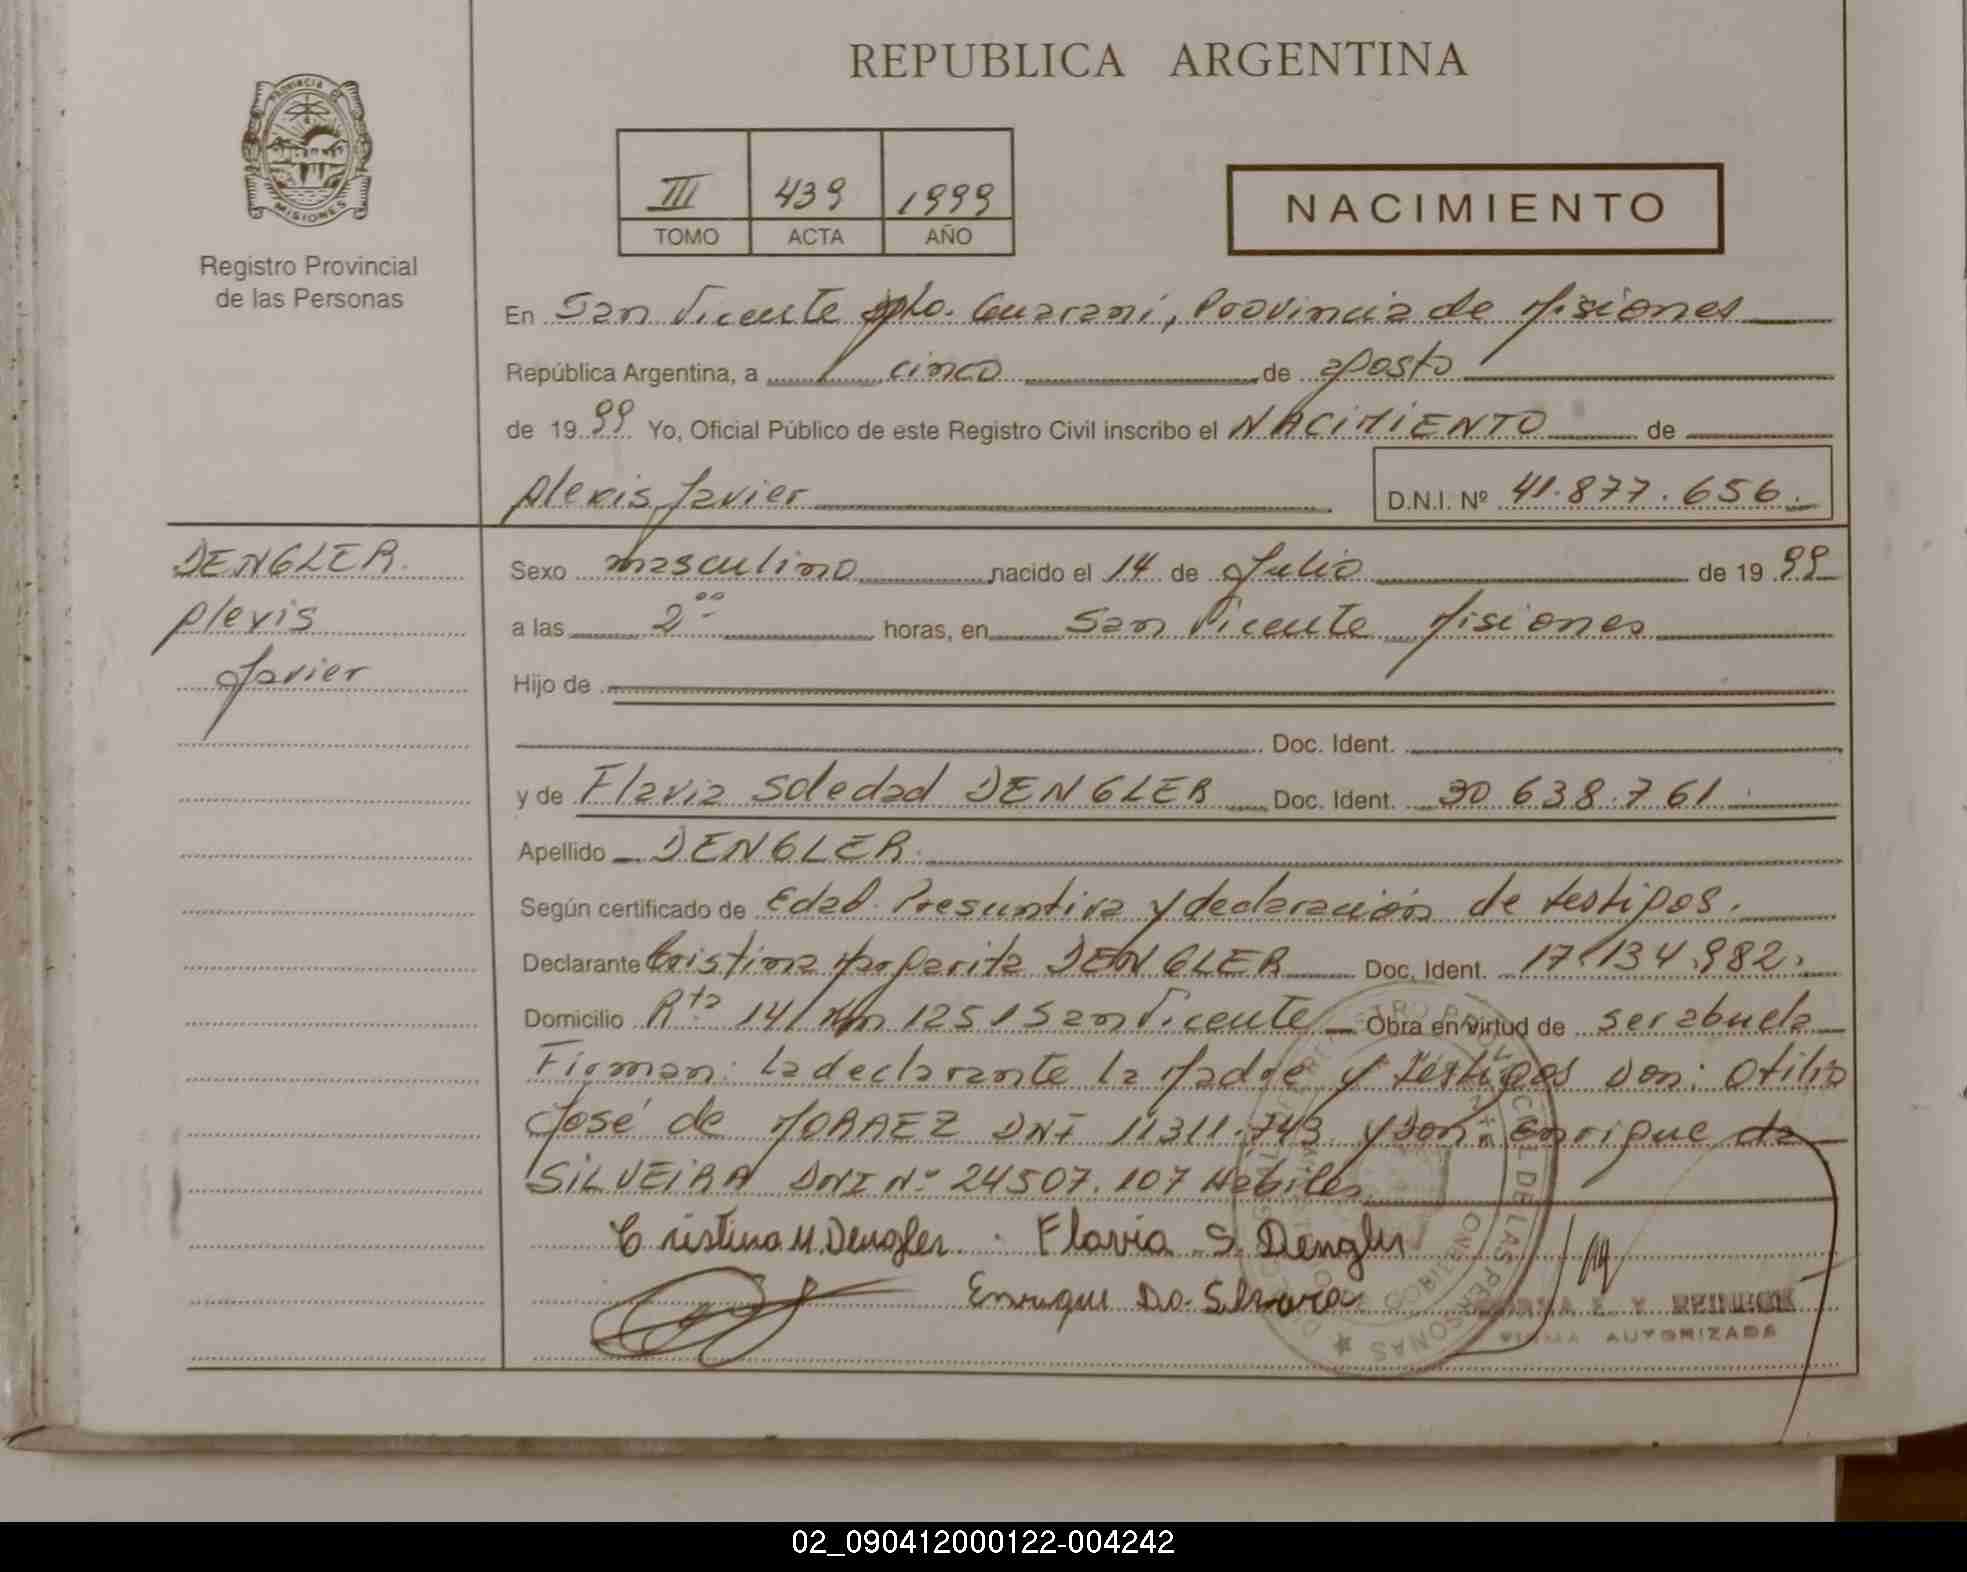 REPUBLICA ARGENTINA
PROVINCIA DE MISIONES
Registro Provincial
de las Personas
III 439 1999
TOMO ACTA AÑO
NACIMIENTO
En San Vicente Dpto. Guaraní, Provincia de Misiones
República Argentina, a cinco de agosto
de 1999 Yo, Oficial Público de este Registro Civil inscribo el NACIMIENTO de
Alexis Javier D.N.I. Nº 41.877.656.
DENGLER
Alexis
Javier
Sexo masculino nacido el 14 de Julio de 1999
a las 2°° horas, en San Vicente Misiones
Hijo de
Doc. Ident.
y de Flavia Soledad DENGLER Doc. Ident. 30 638.761
Apellido DENGLER
Según certificado de Edad Presuntiva y declaración de testigos.
Declarante Cristina Margarita DENGLER Doc. Ident. 17.134.982.
Domicilio Rta 14 Km 1251 San Vicente Obra en virtud de ser abuela
Firman: la declarante la Madre y Testigos Don: Otilio
José de MORAEZ DNI 11311.743 y Don: Enrique da
SILVEIRA DNI Nº 24507.107 Habiles
Cristina M. Dengler. Flavia S. Dengler
Enrique Da. Silveira
FIRMA AUTORIZADA
02_090412000122-004242